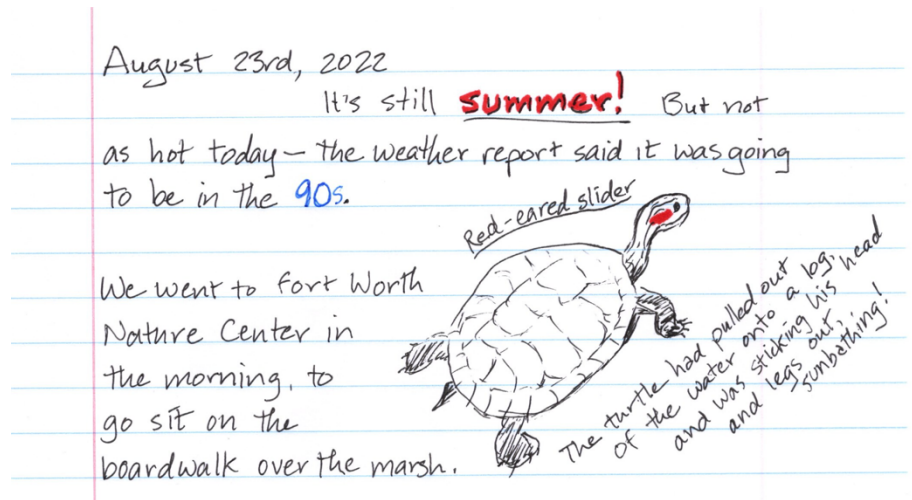 August 23rd, 2022
It's still summer! But not
as hot today – the weather report said it was going
to be in the 90s.
Red-eared slider
We went to Fort Worth
Nature Center in
the morning, to
go sit on the
boardwalk over the marsh.
The turtle had pulled out
of the water onto a log,
and was sticking his head
and legs out,
– sunbathing!